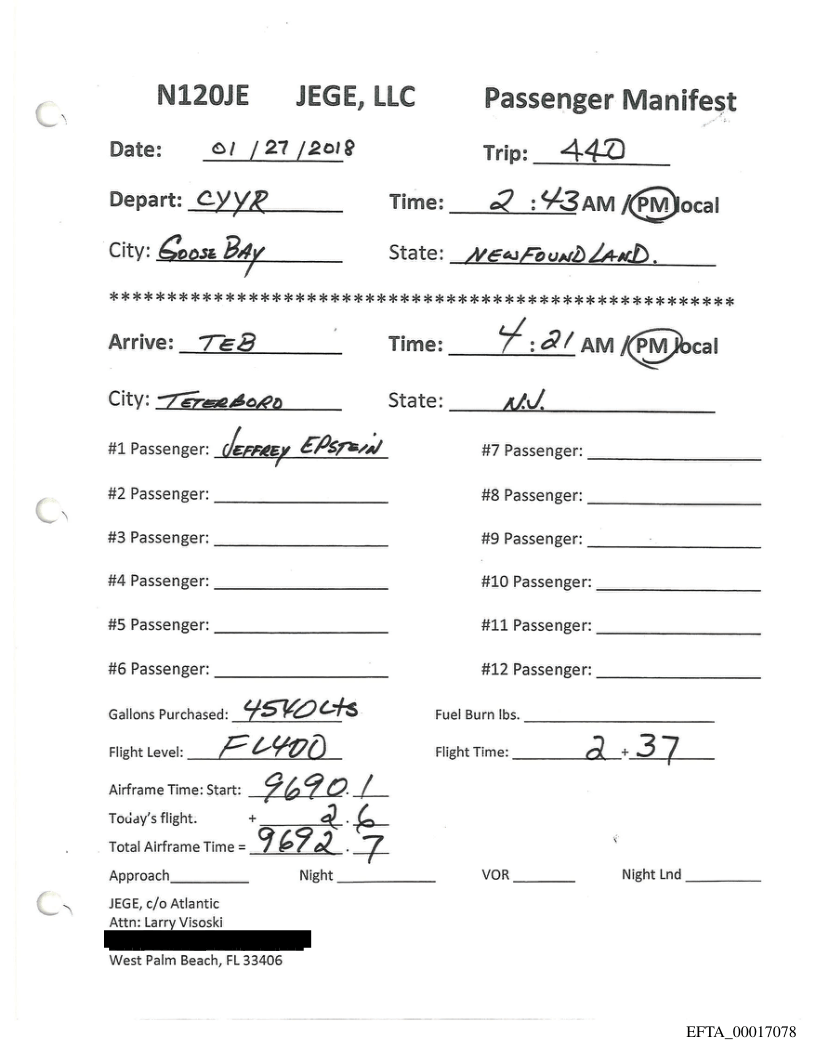 N120JE JEGE, LLC Passenger Manifest
Date: 01 / 27 / 2018 Trip: 440
Depart: CYYR Time: 2 : 43 AM / PM local
City: GOOSE BAY State: NEWFOUNDLAND.
******************************************************
Arrive: TEB Time: 4 : 21 AM / PM local
City: TETERBORO State: N.J.
#1 Passenger: JEFFREY EPSTEIN #7 Passenger:
#2 Passenger: #8 Passenger:
#3 Passenger: #9 Passenger:
#4 Passenger: #10 Passenger:
#5 Passenger: #11 Passenger:
#6 Passenger: #12 Passenger:
Gallons Purchased: 4540 Lts Fuel Burn lbs.
Flight Level: FL400 Flight Time: 2 + 37
Airframe Time: Start: 9690.1
Today's flight. + 2.6
Total Airframe Time = 9692.7
Approach Night VOR Night Lnd
JEGE, c/o Atlantic
Attn: Larry Visoski
West Palm Beach, FL 33406
EFTA_00017078